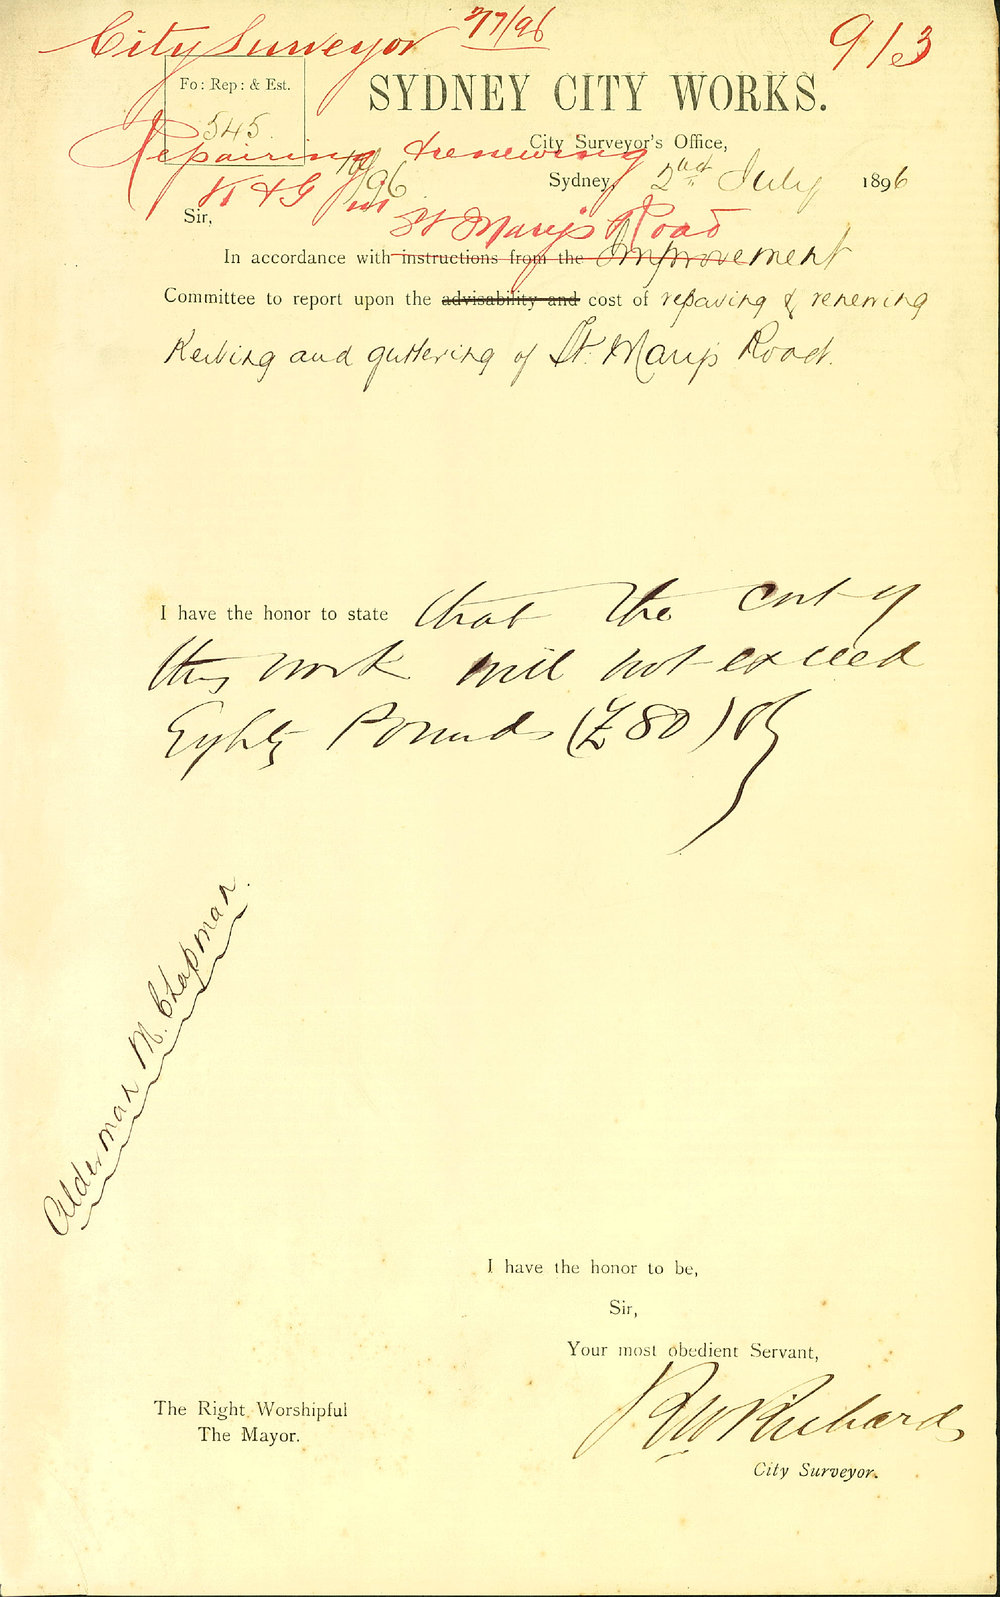 City Surveyor 7/7/96
913
Fo: Rep: & Est.
545
96
SYDNEY CITY WORKS.
City Surveyor's Office,
Repairing & renewing
K & G in
St Mary's Road
Sydney, 2nd July 1896
Sir,
In accordance with instructions from the Improvement
Committee to report upon the advisability and cost of repairing & renewing
Kerbing and guttering of St. Mary's Road.
I have the honor to state that the cost of
this work will not exceed
Eighty Pounds (£80)
Alderman M. Chapman.
I have the honor to be,
Sir,
Your most obedient Servant,
The Right Worshipful
The Mayor.
RW Richards
City Surveyor.